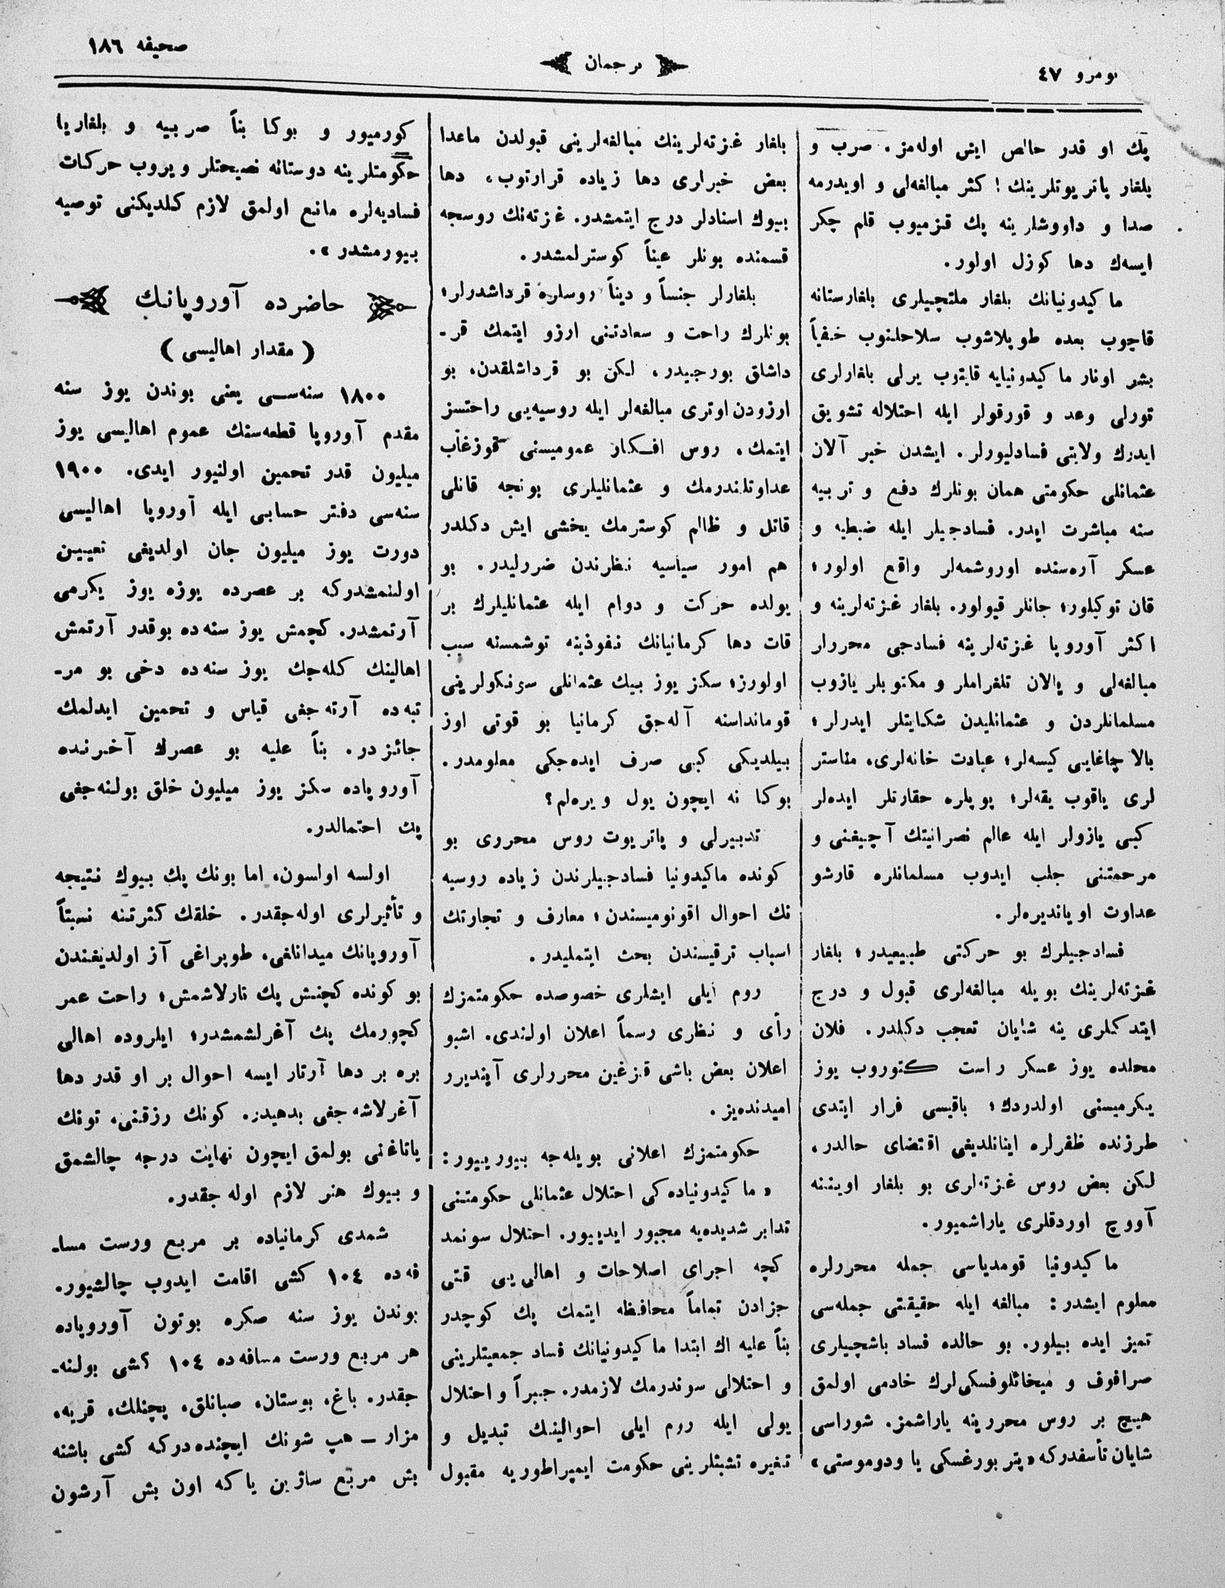 نومرو ٤٧
ترجمان
صحیفه ١٨٦
پك او قدر خالص ایش اوله‌مز. صرب و
بلغار پاتریوتلرینك! كثر مبالغه‌لی و اویدرمه
صدا و داووشلرینه پك قزمیوب قلم چكر
ایسه‌ك دها كوزل اولور.
ماكیدونیانك بلغار ملتچیلری بلغارستانه
قاچوب بعده طوپلاشوب سلاحلنوب خفیاً
بشر اونار ماكیدونیایه قایتوب یرلی بلغارلری
تورلی وعد و قورقولر ایله احتلاله تشویق
ایدرك ولایتی فسادلیورلر. ایشدن خبر آلان
عثمانلی حكومتی همان بونلرك دفع و تربیه
سنه مباشرت ایدر. فسادجیلر ایله ضبطیه و
عسكر آره‌سنده اوروشمه‌لر واقع اولور؛
قان توكیلور؛ جانلر قیولور. بلغار غزته‌لرینه و
اكثر آوروپا غزته‌لرینه فسادجی محررلر
مبالغه‌لی و یالان تلغراملر و مكتوبلر یازوب
مسلمانلردن و عثمانلیدن شكایتلر ایدرلر؛
بالا چاغایی كیسه‌لر؛ عبادت خانه‌لری، مناستر
لری یاقوب یقه‌لر؛ پوپلره حقارتلر ایده‌لر
كبی یازولر ایله عالم نصرانیتك آچیغنی و
مرحمتنی جلب ایدوب مسلمانلره قارشو
عداوت اویاندیره‌لر.
فسادجیلرك بو حركتی طبیعیدر؛ بلغار
غزته‌لرینك بویله مبالغه‌لری قبول و درج
ایتدكلری ینه شایان تعجب دكلدر. فلان
محلده یوز عسكر راست كتوروب یوز
یكرمیسنی اولدردك؛ باقیسی فرار ایتدی
طرزنده ظفرلره اینانلدیغی اقتضای حالدر،
لكن بعض روس غزته‌لری بو بلغار اویننه
آووچ اوردقلری یاراشمیور.
ماكیدونیا قومدیاسی جمله محررلره
معلوم ایشدر: مبالغه ایله حقیقتی جمله‌سی
تمیز ایده بیلور. بو حالده فساد باشچیلری
صرافوف و میخائلوفسكی‌لرك خادمی اولمق
هیچ بر روس محررینه یاراشمز. شوراسی
شایان تأسفدركه «پتربورغسكی یا ودوموستی»
بلغار غزته‌لرینك مبالغه‌لرینی قبولدن ماعدا
بعض خبرلری دها زیاده قرارتوب، دها
بیوك اسنادلر درج ایتمشدر. غزته‌نك روسجه
قسمنده بونلر عیناً كوسترلمشدر.
بلغارلر جنساً و دیناً روسلره قرداشدرلر؛
بونلرك راحت و سعادتنی ارزو ایتمك قر-
داشلق بورجیدر، لكن بو قرداشلقدن، بو
ارزودن اوتری مبالغه‌لر ایله روسیه‌یی راحتسز
ایتمك، روس افكار عمومیسنی
عداوتلندرمك و عثمانلیلری بونجه قانلی
قاتل و ظالم كوسترمك یخشی ایش دكلدر
هم امور سیاسیه نظرندن ضررلیدر. بو
یولده حركت و دوام ایله عثمانلیلرك بر
قات دها كرمانیانك نفوذینه توشمسنه سبب
اولورز؛ سكز یوز بیك عثمانلی سونكولرینی
قومانداسنه آله‌جق كرمانیا بو قوتی اوز
بیلدیكی كبی صرف ایده‌جكی معلومدر.
بوكا نه ایچون یول ویره‌لم؟
تدبیرلی و پاتریوت روس محرری بو
كونده ماكیدونیا فسادجیلرندن زیاده روسیه
نك احوال اقونومیسندن؛ معارف و تجارتك
اسباب ترقیسندن بحث ایتملیدر.
روم ایلی ایشلری خصوصده حكومتمزك
رأی و نظری رسماً اعلان اولندی. اشبو
اعلان بعض باشی قزغین محررلری آیندیرر
امیدنده‌یز.
حكومتمزك اعلانی بویله‌جه بیوریبور:
«ماكیدونیاده‌كی احتلال عثمانلی حكومتنی
تدابر شدیده‌یه مجبور ایدییور. احتلال سونمد
كچه اجرای اصلاحات و اهالی‌یی قتی
جزادن تماماً محافظه ایتمك پك كوچدر
بناً علیه اك ابتدا ماكیدونیانك فساد جمعیتلرینی
و احتلالی سوندرمك لازمدر. جبراً و احتلال
یولی ایله روم ایلی احوالینك تبدیل و
تغیره تشبثلرینی حكومت ایمپراطوریه مقبول
كورمیور و بوكا بناً صربیه و بلغاریا
حكومتلرینه دوستانه نصیحتلر ویروب حركات
فسادیه‌لره مانع اولمق لازم كلدیكنی توصیه
بیورمشدر».
حاضرده آوروپانك
(مقدار اهالیسی)
١٨٠٠ سنه‌سی یعنی بوندن یوز سنه
مقدم آوروپا قطعه‌سنك عموم اهالیسی یوز
میلیون قدر تحمین اولنیور ایدی. ١٩٠٠
سنه‌سی دفتر حسابی ایله آوروپا اهالیسی
دورت یوز میلیون جان اولدیغی تعیین
اولنمشدركه بر عصرده یوزه یوز یكرمی
آرتمشدر. كچمش یوز سنه‌ده بوقدر آرتمش
اهالینك كله‌جك یوز سنه‌ده دخی بو مر-
تبه‌ده آرته‌جغی قیاس و تحمین ایدلمك
جائزدر. بناً علیه بو عصرك آخرنده
آوروپاده سكز یوز میلیون خلق بولنه‌جغی
پك احتمالدر.
اولسه اولسون، اما بونك پك بیوك نتیجه
و تأثیرلری اوله‌جقدر. خلقك كثرتنه نسبتاً
آوروپانك میدانلغی، طوپراغی آز اولدیغندن
بو كونده كچنش پك تارلاشمش؛ راحت عمر
كچورمك پك آغرلشمشدر؛ ایلروده اهالی
بره بر دها آرتار ایسه احوال بر او قدر دها
آغرلاشه‌جغی بدهیدر. كونك رزقنی، تونك
یاتاغنی بولمق ایچون نهایت درجه چالشمق
و بیوك هنر لازم اوله‌جقدر.
شمدی كرمانیاده بر مربع ورست مسا-
فه‌ده ١٠٤ كشی اقامت ایدوب چالشیور.
بوندن یوز سنه صكره بوتون آوروپاده
هر مربع ورست مسافه‌ده ١٠٤ كشی بولنه-
جقدر. باغ، بوستان، صبانلق، پچنلك، قریه،
مزار — هپ شونك ایچنده‌دركه كشی باشنه
بش مربع ساژین یاكه اون بش آرشون